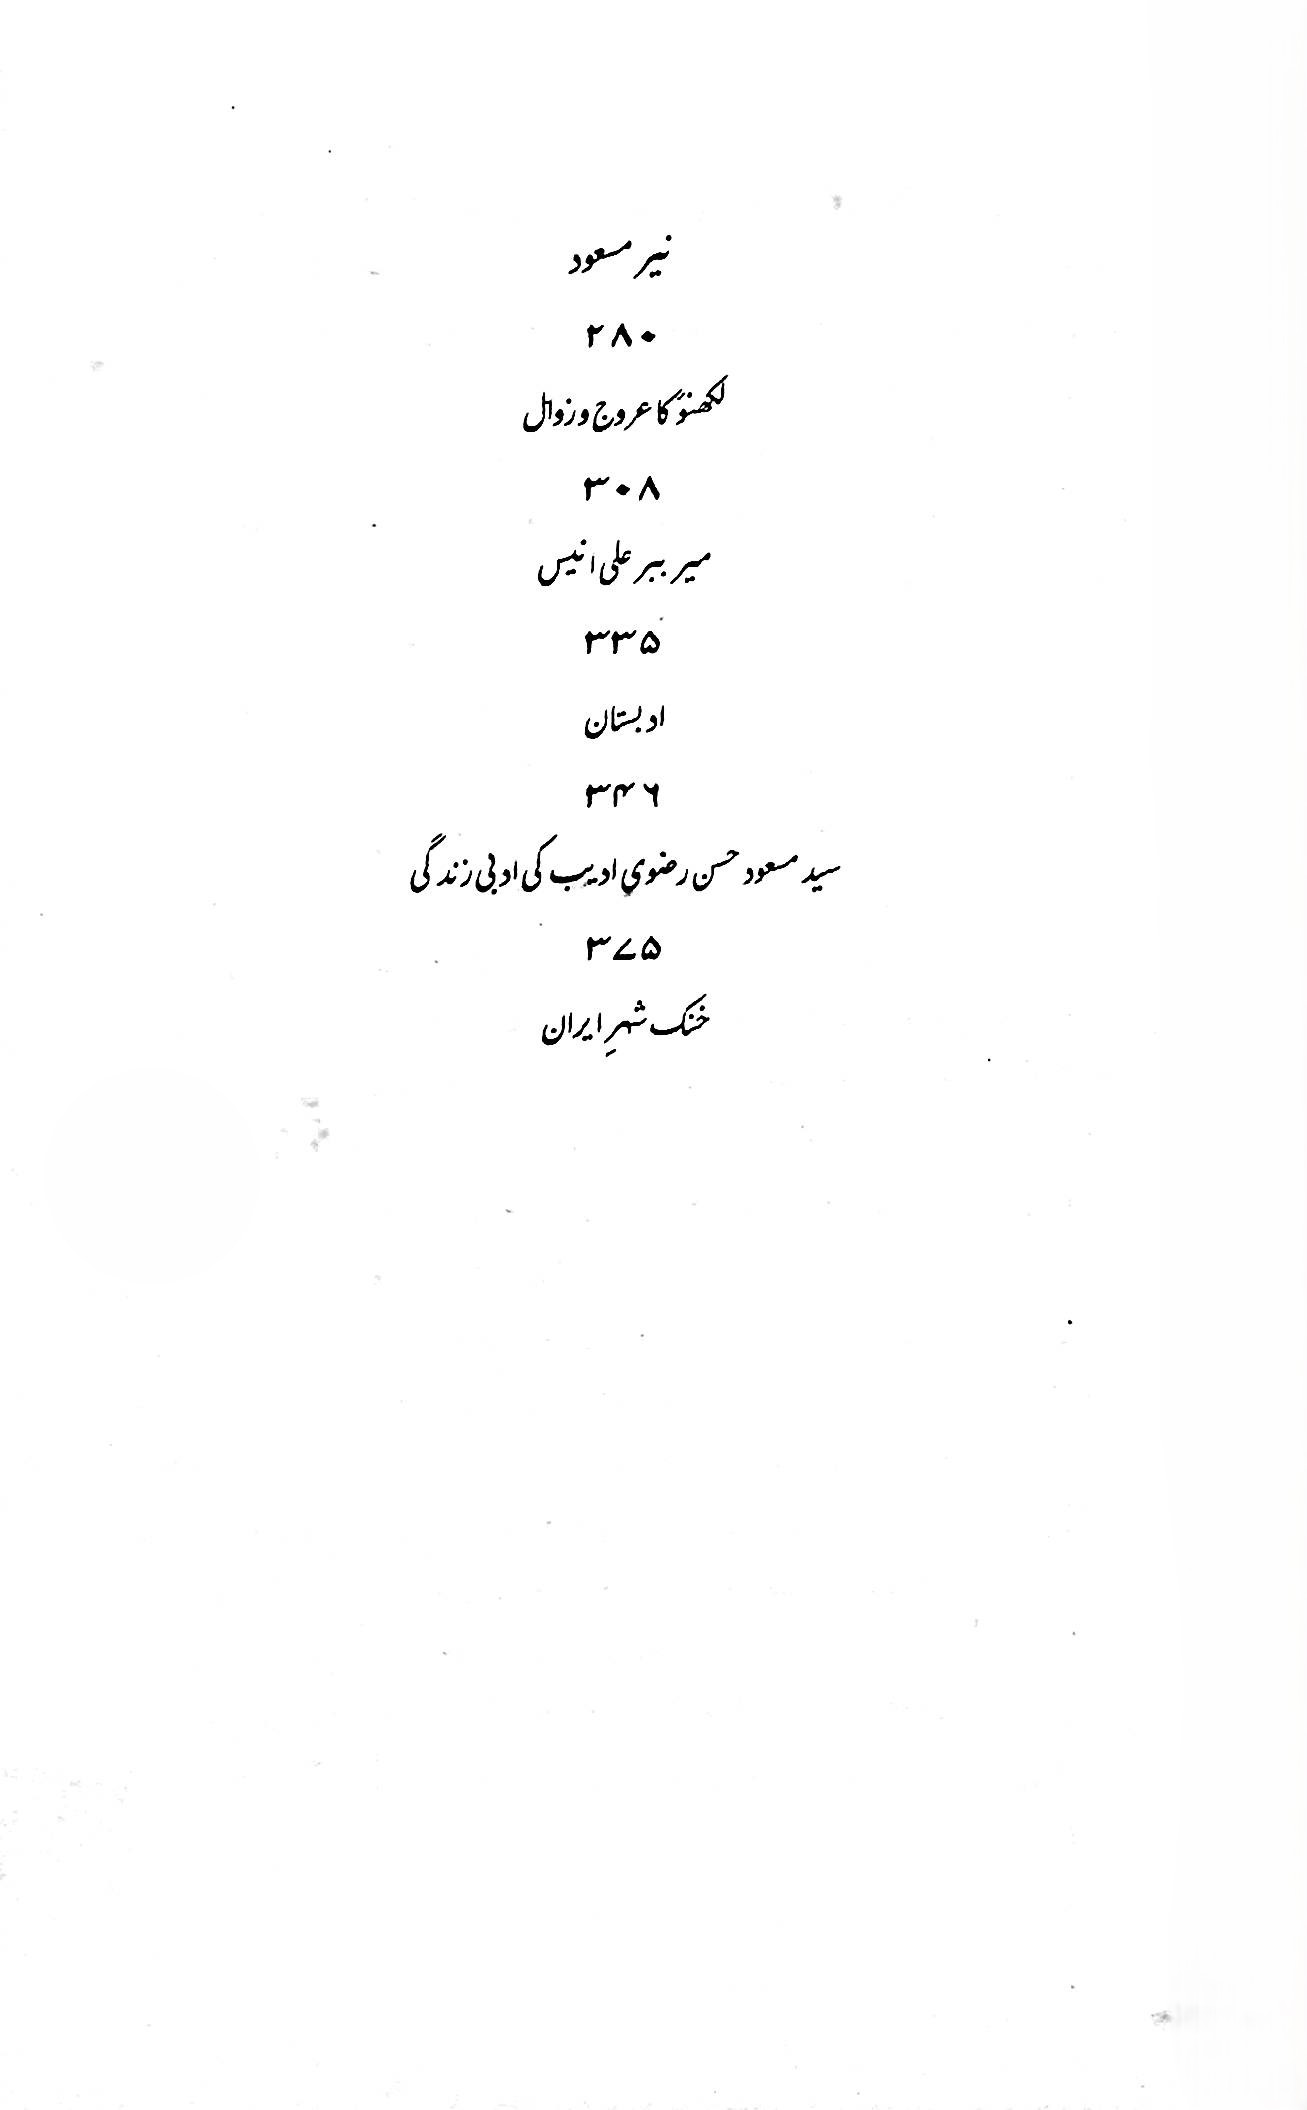 نیر مسعود
۲۸۰
لکھنؤ کا عروج و زوال
۳۰۸
میر ببر علی انیس
۳۳۵
ادبستان
۳۴۶
سید مسعود حسن رضوی ادیب کی ادبی زندگی
۳۷۵
خنک شہرِ ایران